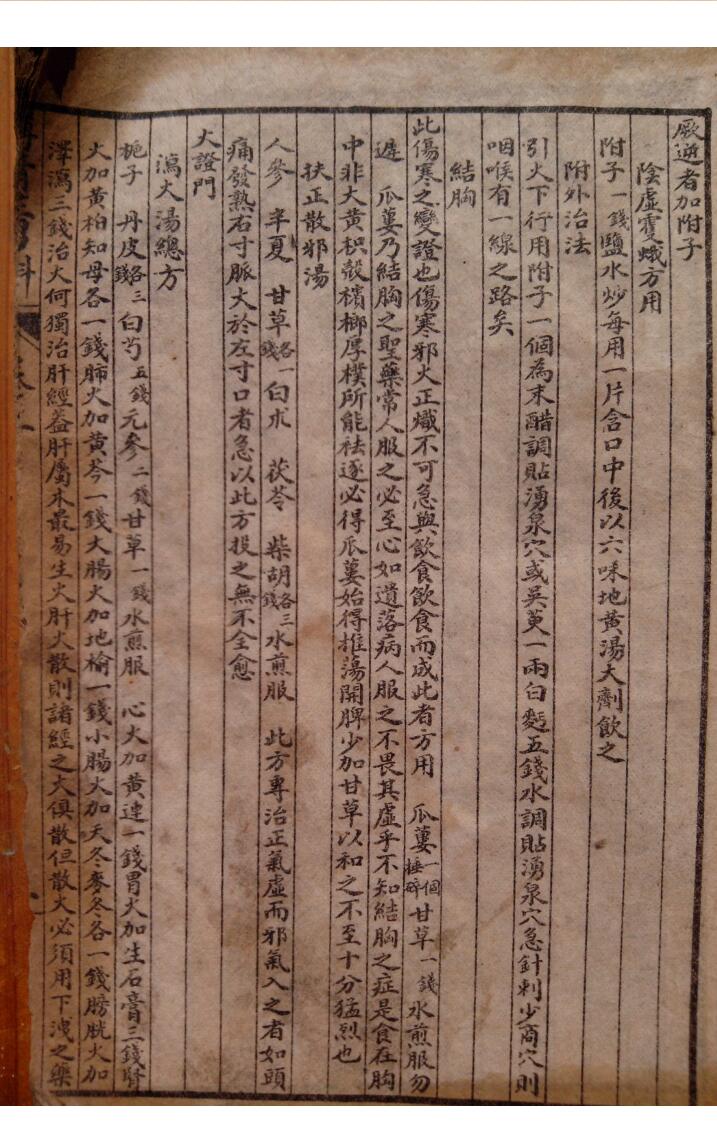 厥逆者加附子
陰虛雙蛾方用
附子一錢鹽水炒每用一片含口中後以六味地黃湯大劑飲之
附外治法
引火下行用附子一個為末醋調貼湧泉穴或吳萸一兩白麪五錢水調貼湧泉穴急針刺少商穴則
咽喉有一線之路矣
結胸
此傷寒之變證也傷寒邪火正熾不可急與飲食飲食而成此者方用 瓜蔞一個搥碎甘草一錢水煎服勿
遲 瓜蔞乃結胸之聖藥常人服之必至心如遺落病人服之不畏其虛乎不知結胸之症是食在胸
中非大黃枳殼檳榔厚樸所能祛逐必得瓜蔞始得推蕩開脾少加甘草以和之不至十分猛烈也
扶正散邪湯
人參 半夏 甘草各一錢白朮 茯苓 柴胡各三錢水煎服 此方專治正氣虛而邪氣入之者如頭
痛發熱右寸脈大於左寸口者急以此方投之無不全愈
火證門
瀉火湯總方
梔子 丹皮各三錢白芍五錢元參二錢甘草一錢水煎服 心火加黃連一錢胃火加生石膏三錢腎
火加黃柏知母各一錢肺火加黃芩一錢大腸火加地榆一錢小腸火加天冬麥冬各一錢膀胱火加
澤瀉三錢治火何獨治肝經蓋肝屬木最易生火肝火散則諸經之火俱散但散火必須用下洩之藥